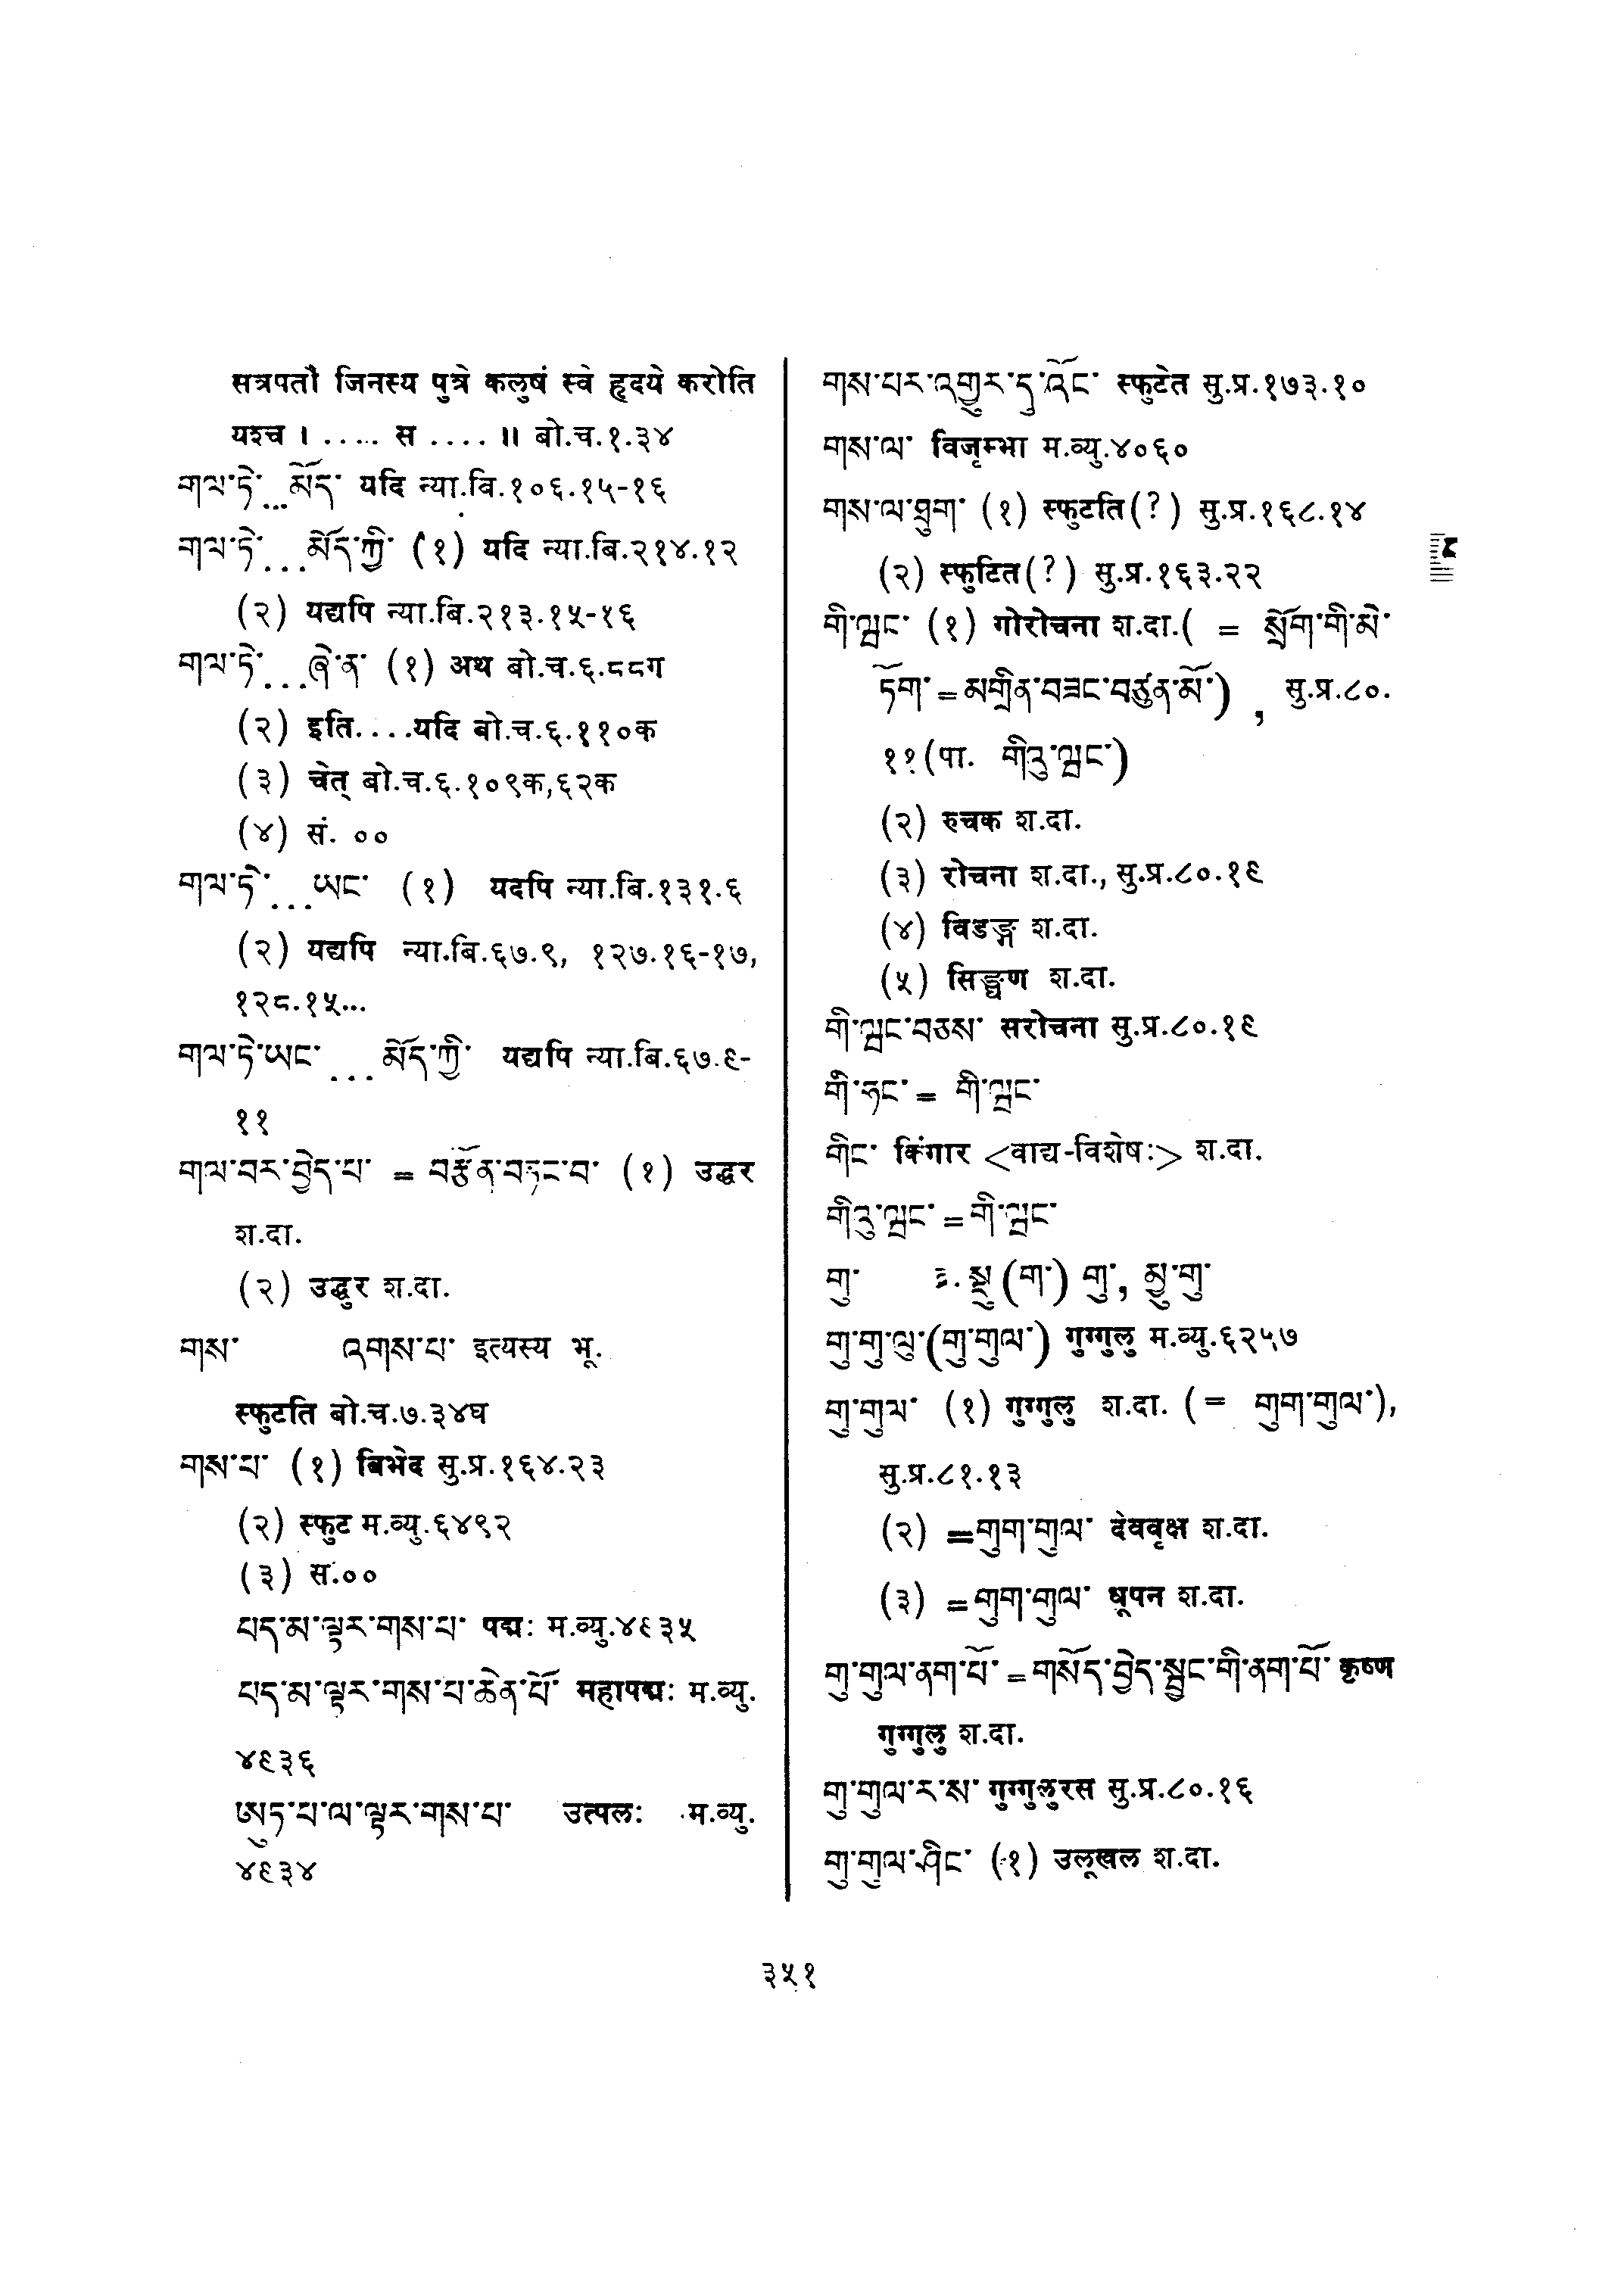 सत्रपतौ जिनस्य पुत्रे कलुषं स्वे हृदये करोति
यश्च । ..... स .... ॥ बो.च.१.३४
གལ་ཏེ་...མོད་ यदि न्या.बि.१०६.१५-१६
གལ་ཏེ་...མོད་ཀྱི་ (१) यदि न्या.बि.२१४.१२
(२) यद्यपि न्या.बि.२१३.१५-१६
གལ་ཏེ་...ཞེ་ན་ (१) अथ बो.च.६.८८ग
(२) इति....यदि बो.च.६.११०क
(३) चेत् बो.च.६.१०९क,६२क
(४) सं. ००
གལ་ཏེ་...ཡང་ (१) यदपि न्या.बि.१३१.६
(२) यद्यपि न्या.बि.६७.९, १२७.१६-१७,
१२८.१५...
གལ་ཏེ་ཡང་ ... མོད་ཀྱི་ यद्यपि न्या.बि.६७.९-
११
གལ་བར་བྱེད་པ་ = བརྩོན་བཏང་བ་ (१) उद्धर
श.दा.
(२) उद्धुर श.दा.
གས་ འགས་པ་ इत्यस्य भू.
स्फुटति बो.च.७.३४घ
གས་པ་ (१) बिभेद सु.प्र.१६४.२३
(२) स्फुट म.व्यु.६४९२
(३) सं.००
པད་མ་ལྟར་གས་པ་ पद्मः म.व्यु.४९३५
པད་མ་ལྟར་གས་པ་ཆེན་པོ་ महापद्मः म.व्यु.
४९३६
ཨུཏ་པ་ལ་ལྟར་གས་པ་ उत्पलः म.व्यु.
४९३४
གས་པར་འགྱུར་དུ་འོང་ स्फुटेत सु.प्र.१७३.१०
གས་ལ་ विजृम्भा म.व्यु.४०६०
གས་ལ་ཐུག་ (१) स्फुटति(?) सु.प्र.१६८.१४
(२) स्फुटित(?) सु.प्र.१६३.२२
གི་ལྦང་ (१) गोरोचना श.दा.( = སྲོག་གི་མེ་
ཏོག་ = མགྲིན་བཟང་བཙུན་མོ་) , सु.प्र.८०.
११(पा. གིའུ་ལྦང་)
(२) रुचक श.दा.
(३) रोचना श.दा., सु.प्र.८०.१९
(४) विडङ्ग श.दा.
(५) सिङ्घण श.दा.
གི་ལྦང་བཅས་ सरोचना सु.प्र.८०.१९
གི་ཧང་ = གི་ལྦང་
གིང་ किंगार <वाद्य-विशेषः> श.दा.
གིའུ་ལྦང་ = གི་ལྦང་
གུ་ द्र. སྦྲུ (ག་) གུ་, མྱུ་གུ་
གུ་གུ་ལུ་(གུ་གུལ་) गुग्गुलु म.व्यु.६२५७
གུ་གུལ་ (१) गुग्गुलु श.दा. (= གུག་གུལ་),
सु.प्र.८१.१३
(२) =གུག་གུལ་ देववृक्ष श.दा.
(३) =གུག་གུལ་ धूपन श.दा.
གུ་གུལ་ནག་པོ་ = གསོད་བྱེད་སྦྱང་གི་ནག་པོ་ कृष्ण
गुग्गुलु श.दा.
གུ་གུལ་ར་ས་ गुग्गुलुरस सु.प्र.८०.१६
གུ་གུལ་ཤིང་ (१) उलूखल श.दा.
३५१